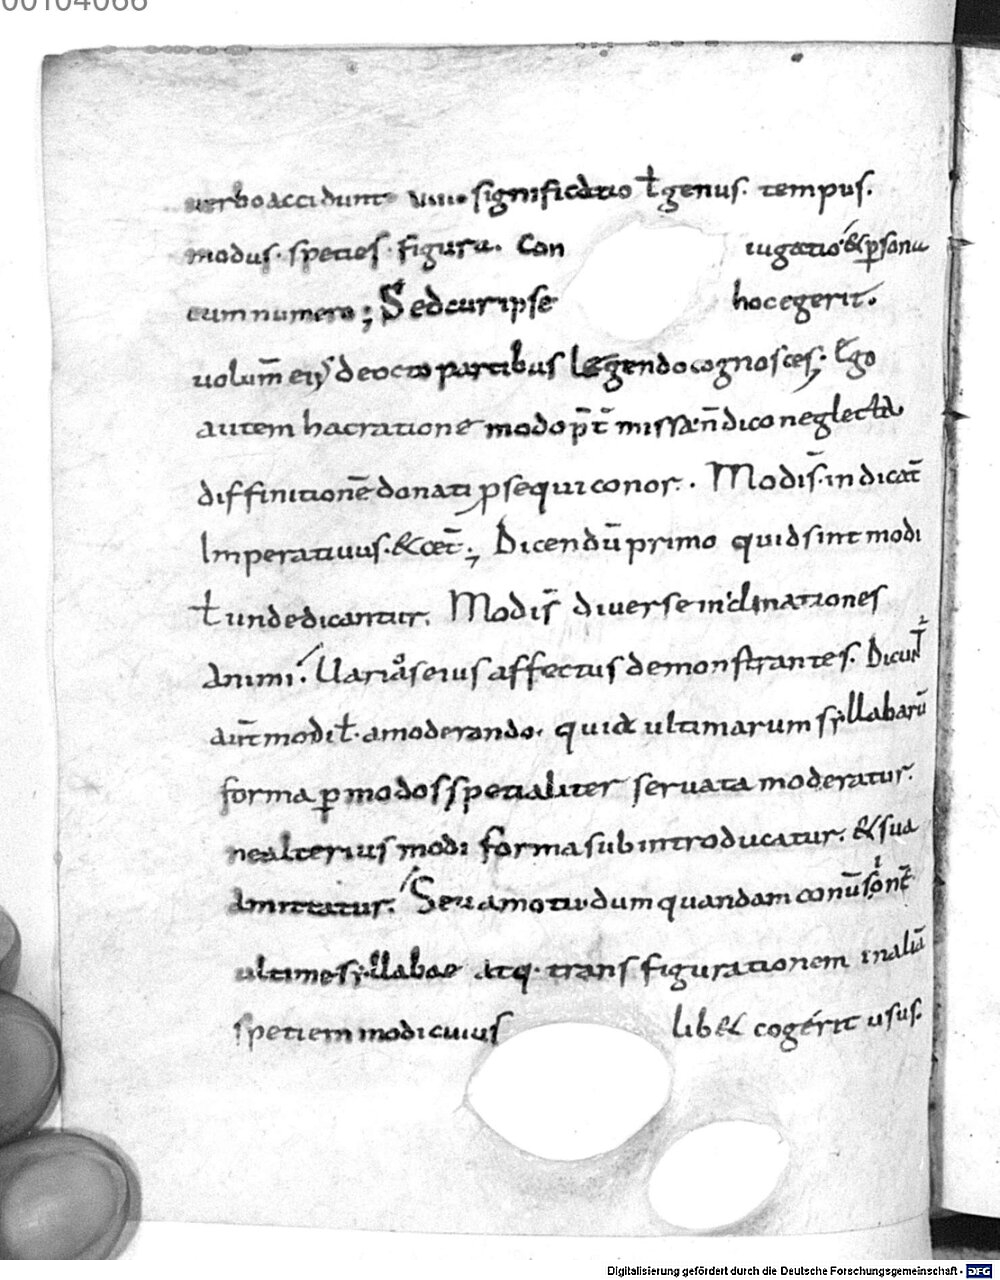 00104066
uerbo accidunt uiii significatio ƚ genus. tempus.
modus. species. figura. Con iugatio & p̲sona
cum numero; Sed cur ipse hoc egerit.
uolum̄ ei; de octo partibus legendo cognosces; Ego
autem hac ratione modo p̄t̄ missa n̄ dico neglecta
diffinitionē donati p̲sequi conor. Modis̄. indicat̄
Imperatiuus. & cet̄; Dicendū primo quid sint modi
ƚ unde dicantur. Modis̄ diuerse inclinationes
animi. Uarios eius affectus demonstrantes. Dicunt̄
aut̄ modi ƚ. a moderando. quid ultimarum syllabarū
forma p̲ modos spetialiter seruata moderatur.
ne alterius modi forma subintroducatur. & sua
amittatur. Seu a motu dum quandam conūsionē
ultime syllabae atq. transfigurationem in aliā
spetiem modi cuius lib& cogerit usus.
Digitalisierung gefördert durch die Deutsche Forschungsgemeinschaft - DFG